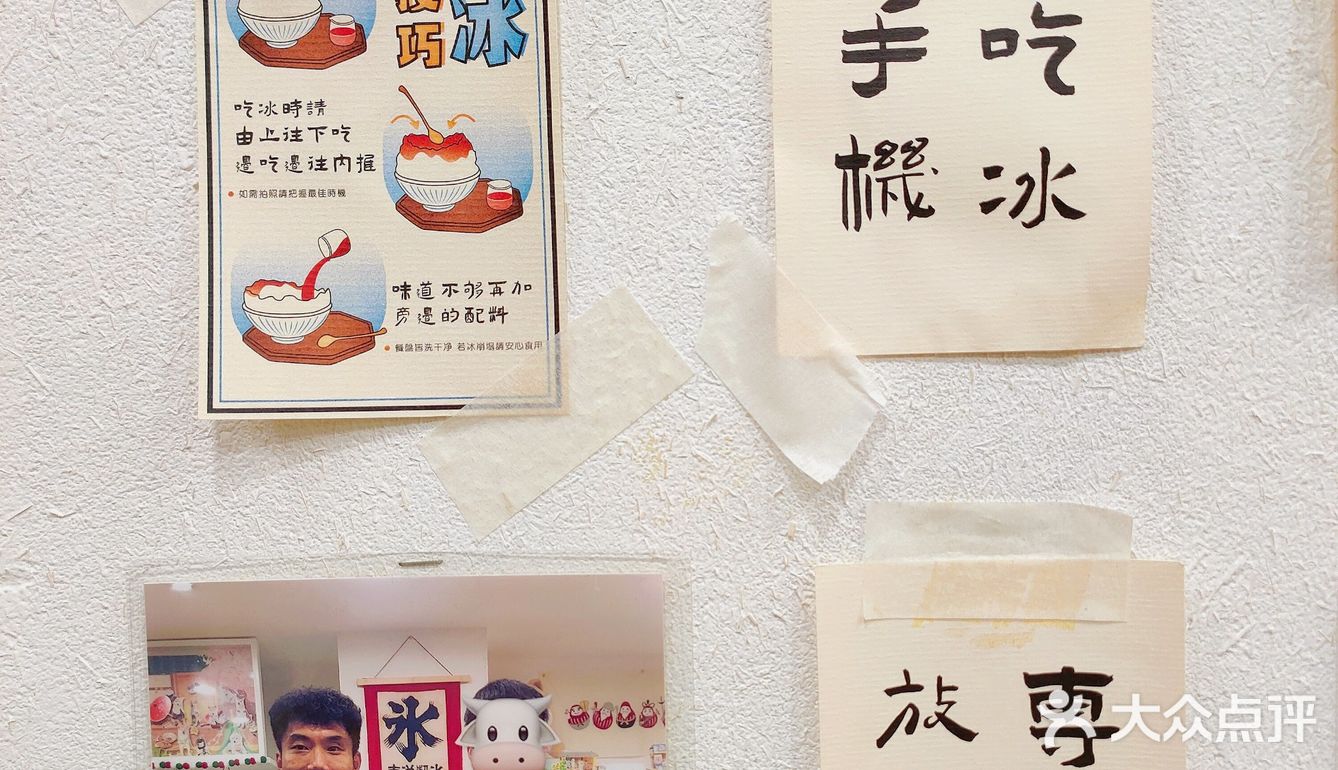 技巧
冰
吃冰時請
由上往下吃
邊吃邊往內挖
如需拍照請把握最佳時機
味道不够再加
旁邊的配料
餐盤皆洗干净 若冰崩塌請安心食用
吃冰
手機
專
放
氷
大众点评